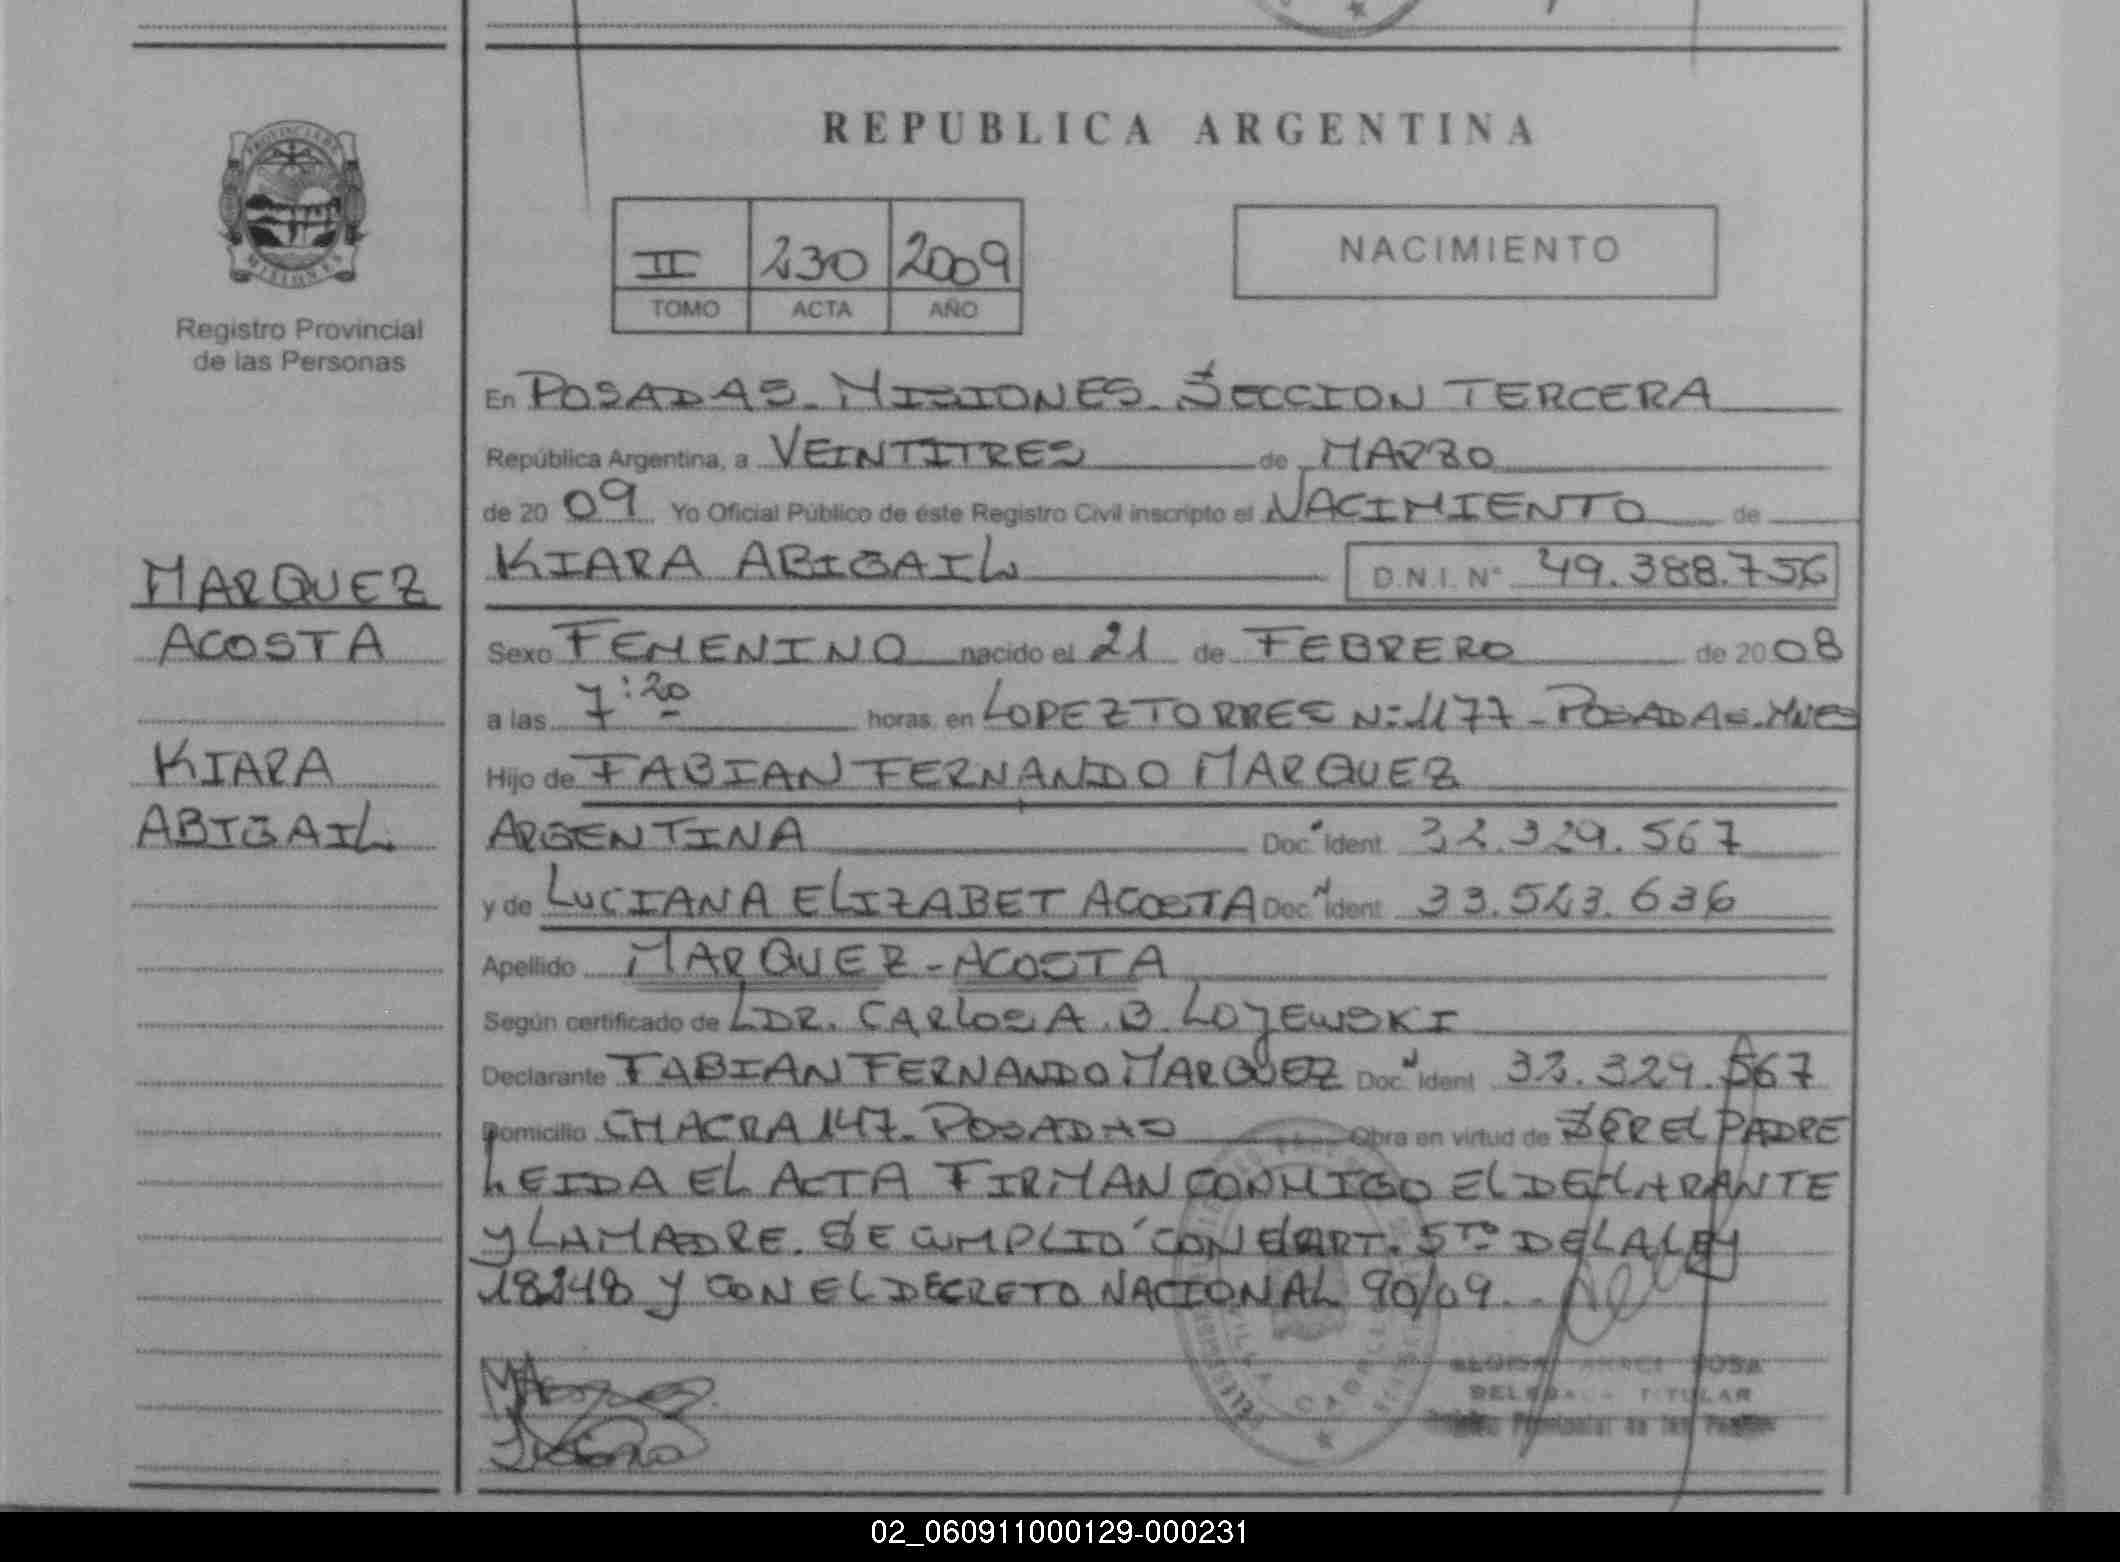 REPUBLICA ARGENTINA
PROVINCIA DE
MISIONES
Registro Provincial
de las Personas
II 230 2009
TOMO ACTA AÑO
NACIMIENTO
En POSADAS - MISIONES - SECCION TERCERA
República Argentina, a VEINTITRES de MARZO
de 20 09 Yo Oficial Público de éste Registro Civil inscripto el NACIMIENTO de
KIARA ABIGAIL D.N.I. N° 49.388.756
MARQUEZ
ACOSTA
KIARA
ABIGAIL
Sexo FEMENINO nacido el 21 de FEBRERO de 20 08
a las 7:20 horas, en LOPEZ TORRES Nº 1177 - POSADAS - MNES
Hijo de FABIAN FERNANDO MARQUEZ
ARGENTINA Doc. Ident. 32.329.567
y de LUCIANA ELIZABET ACOSTA Doc. Ident. 33.523.636
Apellido MARQUEZ - ACOSTA
Según certificado de LDR. CARLOS A. B. LOJEWSKI
Declarante FABIAN FERNANDO MARQUEZ Doc. Ident 32.329.567
Domicilio CHACRA 147 - POSADAS Obra en virtud de SER EL PADRE
LEIDA EL ACTA FIRMAN CONMIGO EL DECLARANTE
Y LA MADRE. SE CUMPLIO CON EL ART. 5TO DE LA LEY
18248 Y CON EL DECRETO NACIONAL 90/09
TITULAR
02_060911000129-000231